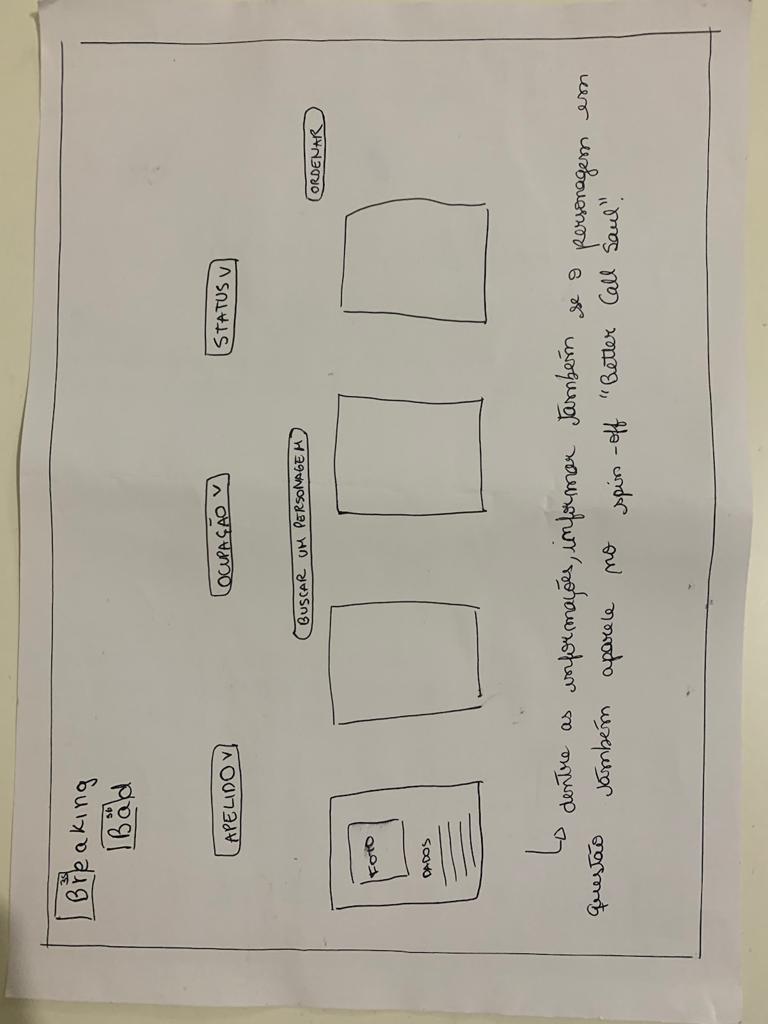 35
Breaking
56
Bad
APELIDO V
OCUPAÇÃO V
STATUS V
BUSCAR UM PERSONAGEM
ORDENAR
FOTO
DADOS
dentre as informações, informar também se o personagem em
questão também aparece no spin-off "Better Call Saul".